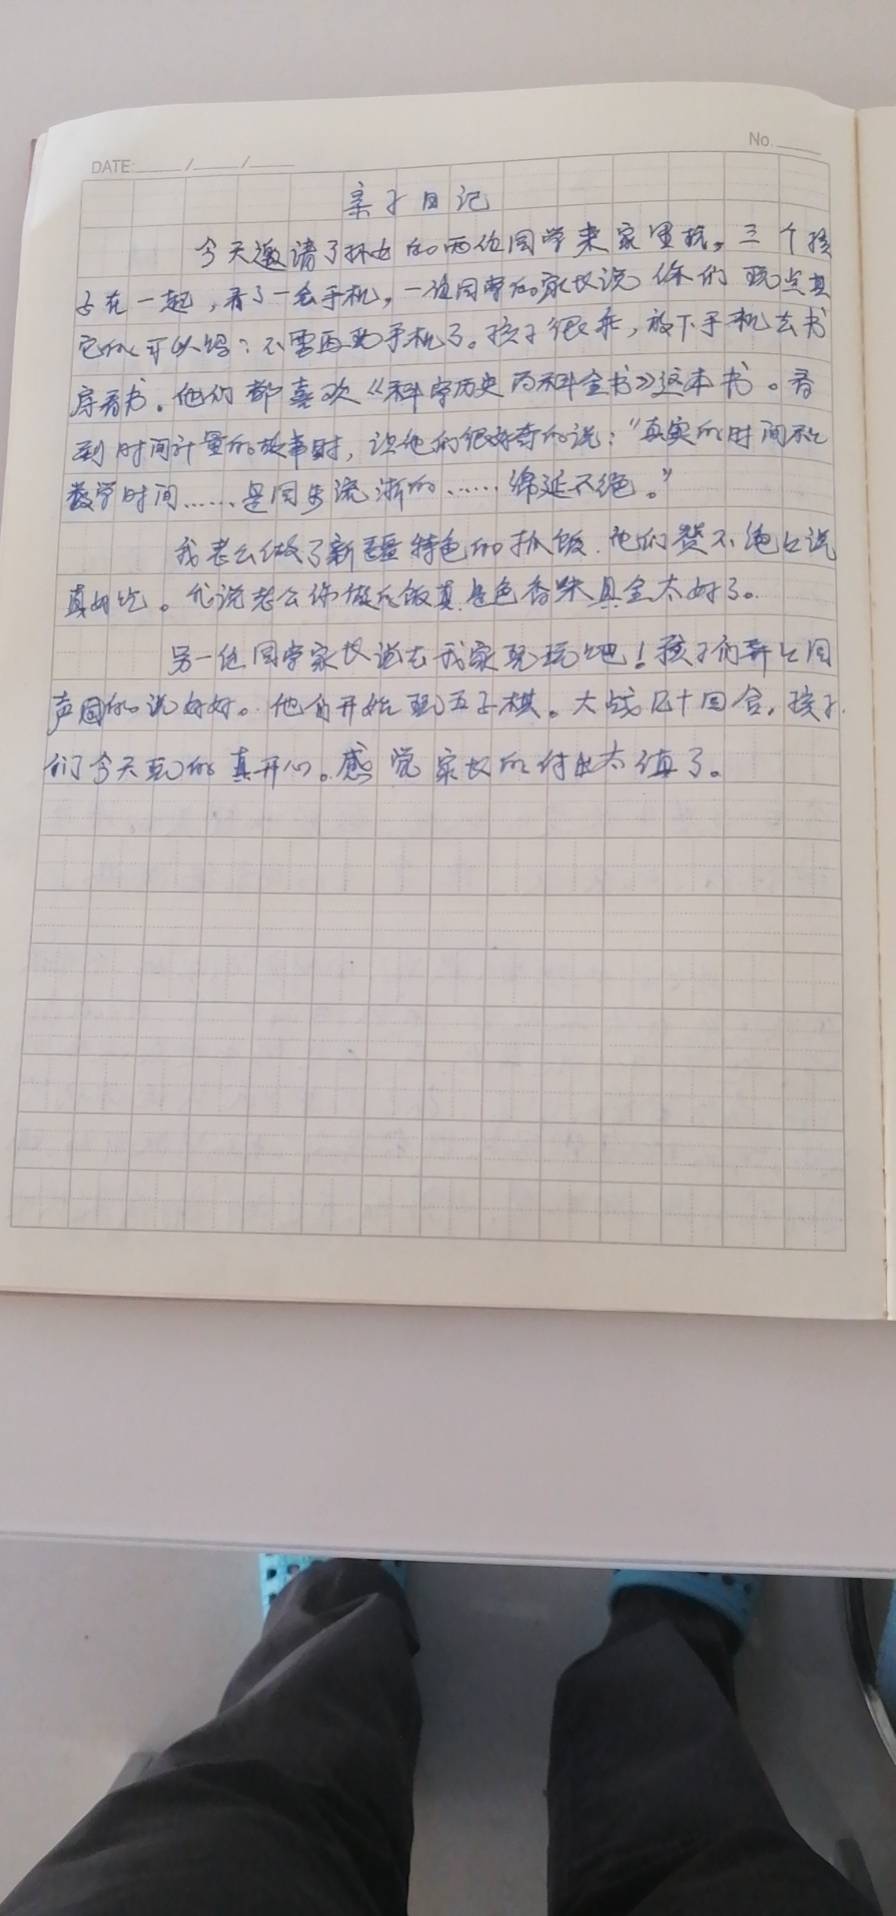 No.
DATE: / /
亲子日记
今天邀请了环女的两位同学来家里玩。三个孩
子在一起,看了一会手机,一位同学的家长说你们玩点其
它的可以吗?不需再玩手机了。孩子很乖,放下手机去书
房看书。他们都喜欢《科学历史百科全书》这本书。看
到时间计量的故事时,让他们很好奇的说:"真实的时间和
数学时间……是同步流淅的……绵延不绝。"
我老公做了新疆特色的抓饭.他们赞不绝口说
真好吃。我说老公你做的饭真是色香味具全太好了。
另一位同学家长说去我家玩玩吧!孩子们异口同
声同的说好好。他们开始玩五子棋。大战几十回合,孩子
们今天玩的真开心。感觉家长的付出太值了。